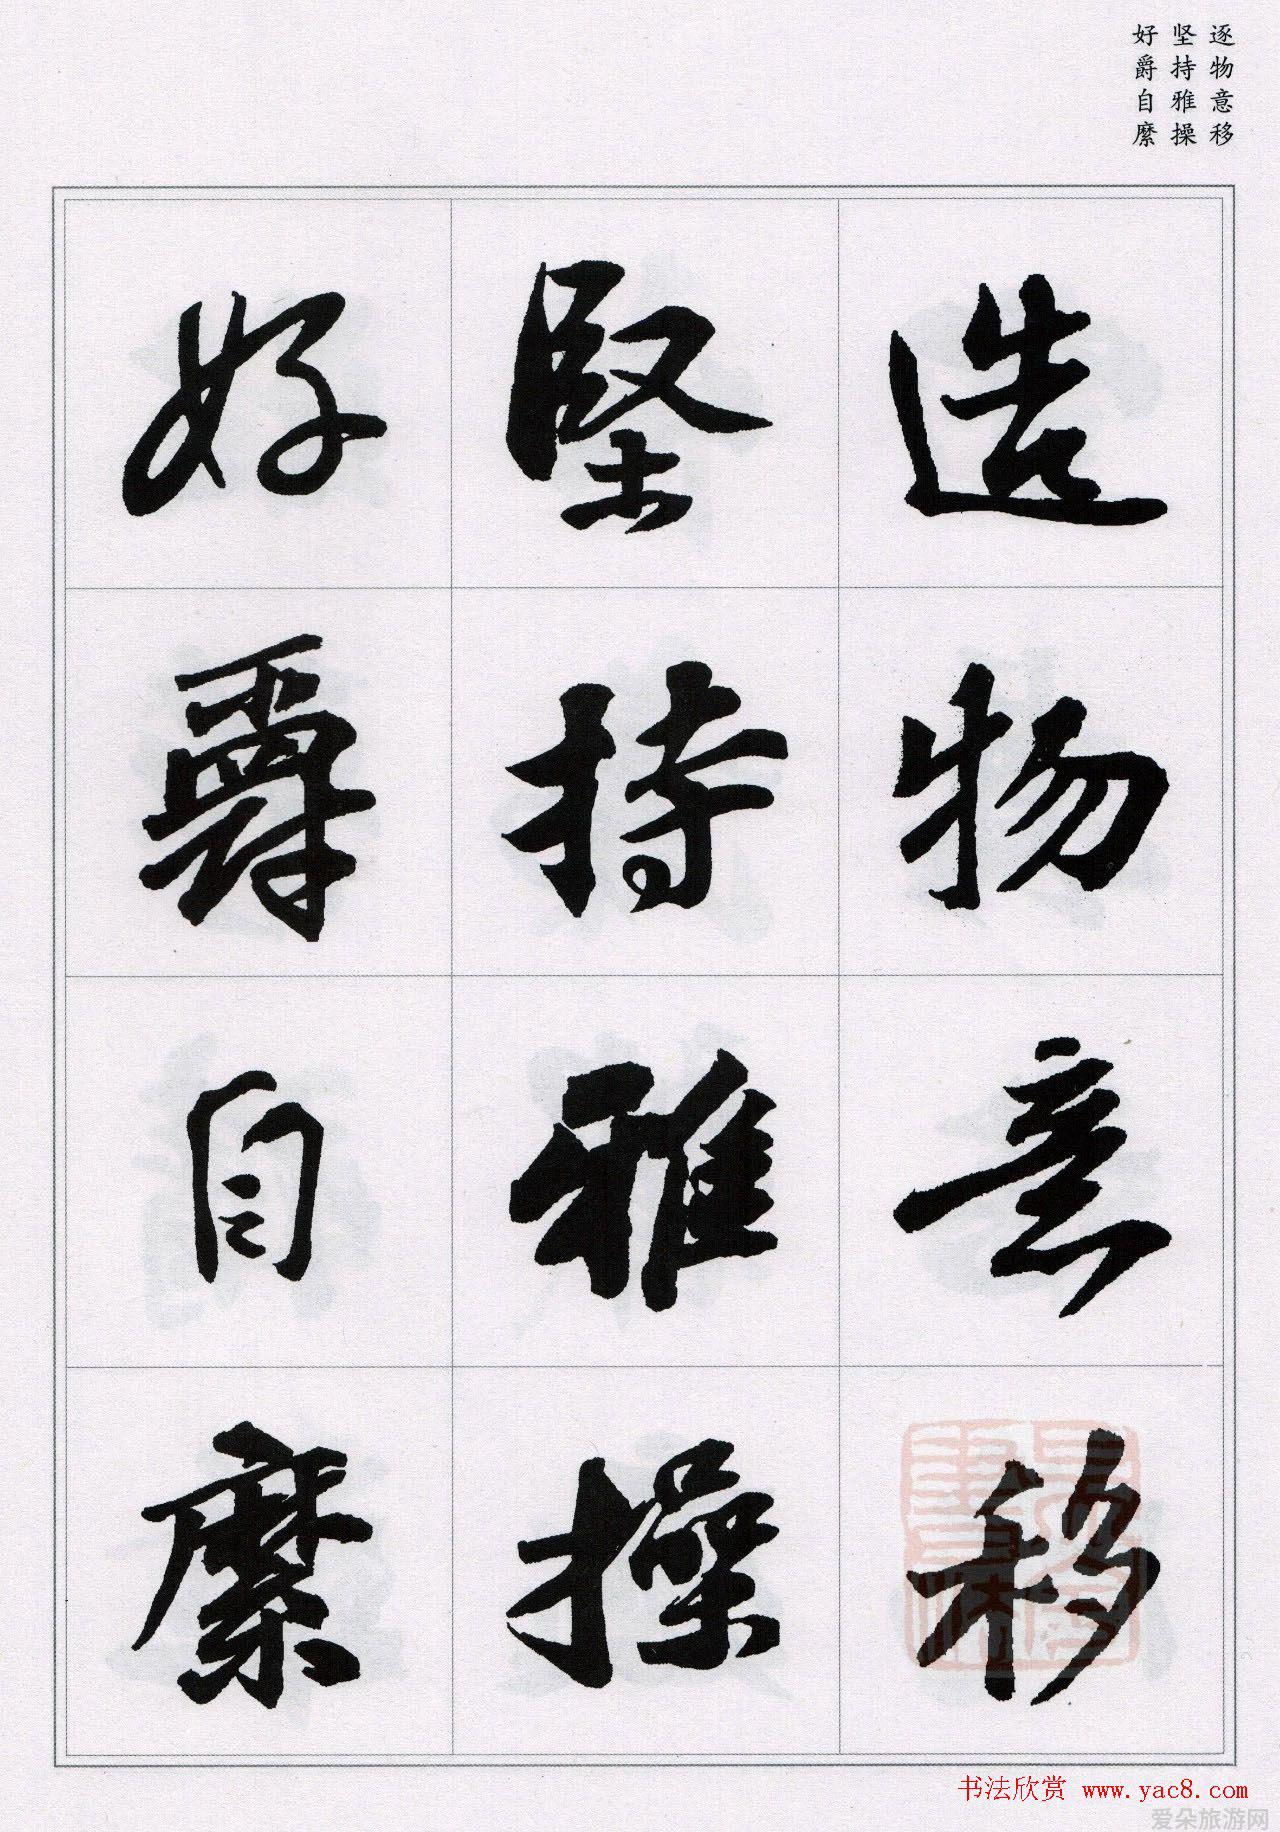 逐物意移
坚持雅操
好爵自縻
造物意移
堅持雅操
好爵自縻
书法欣赏 www.yac8.com
爱朵旅游网